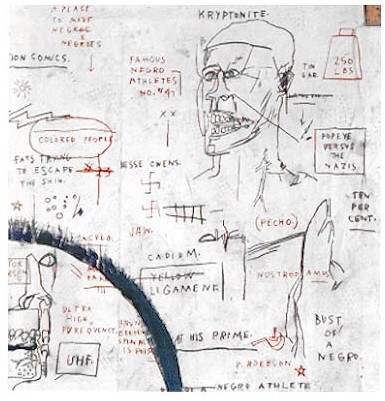 A PLACE
TO MAKE
NEGROES
ION COMICS.
KRYPTONITE.
FAMOUS
NEGRO
ATHLETES
NO. #47
TIN
EAR.
250
LBS
X X
COLORED PEOPLE
RATS TRYING
TO ESCAPE
THE SKIN.
JESSE OWENS.
POPEYE
VERSUS
THE
NAZIS.
TEN
PER
CENT.
JAW.
(PECHO.)
CADIUM.
YELLOW
LIGAMENT.
NOSTRODAMUS
ULTRA
HIGH
FREQUENCY.
UHF.
AT HIS PRIME.
BUST
OF
A
NEGRO.
P. ROBESON
OF A NEGRO ATHLETE